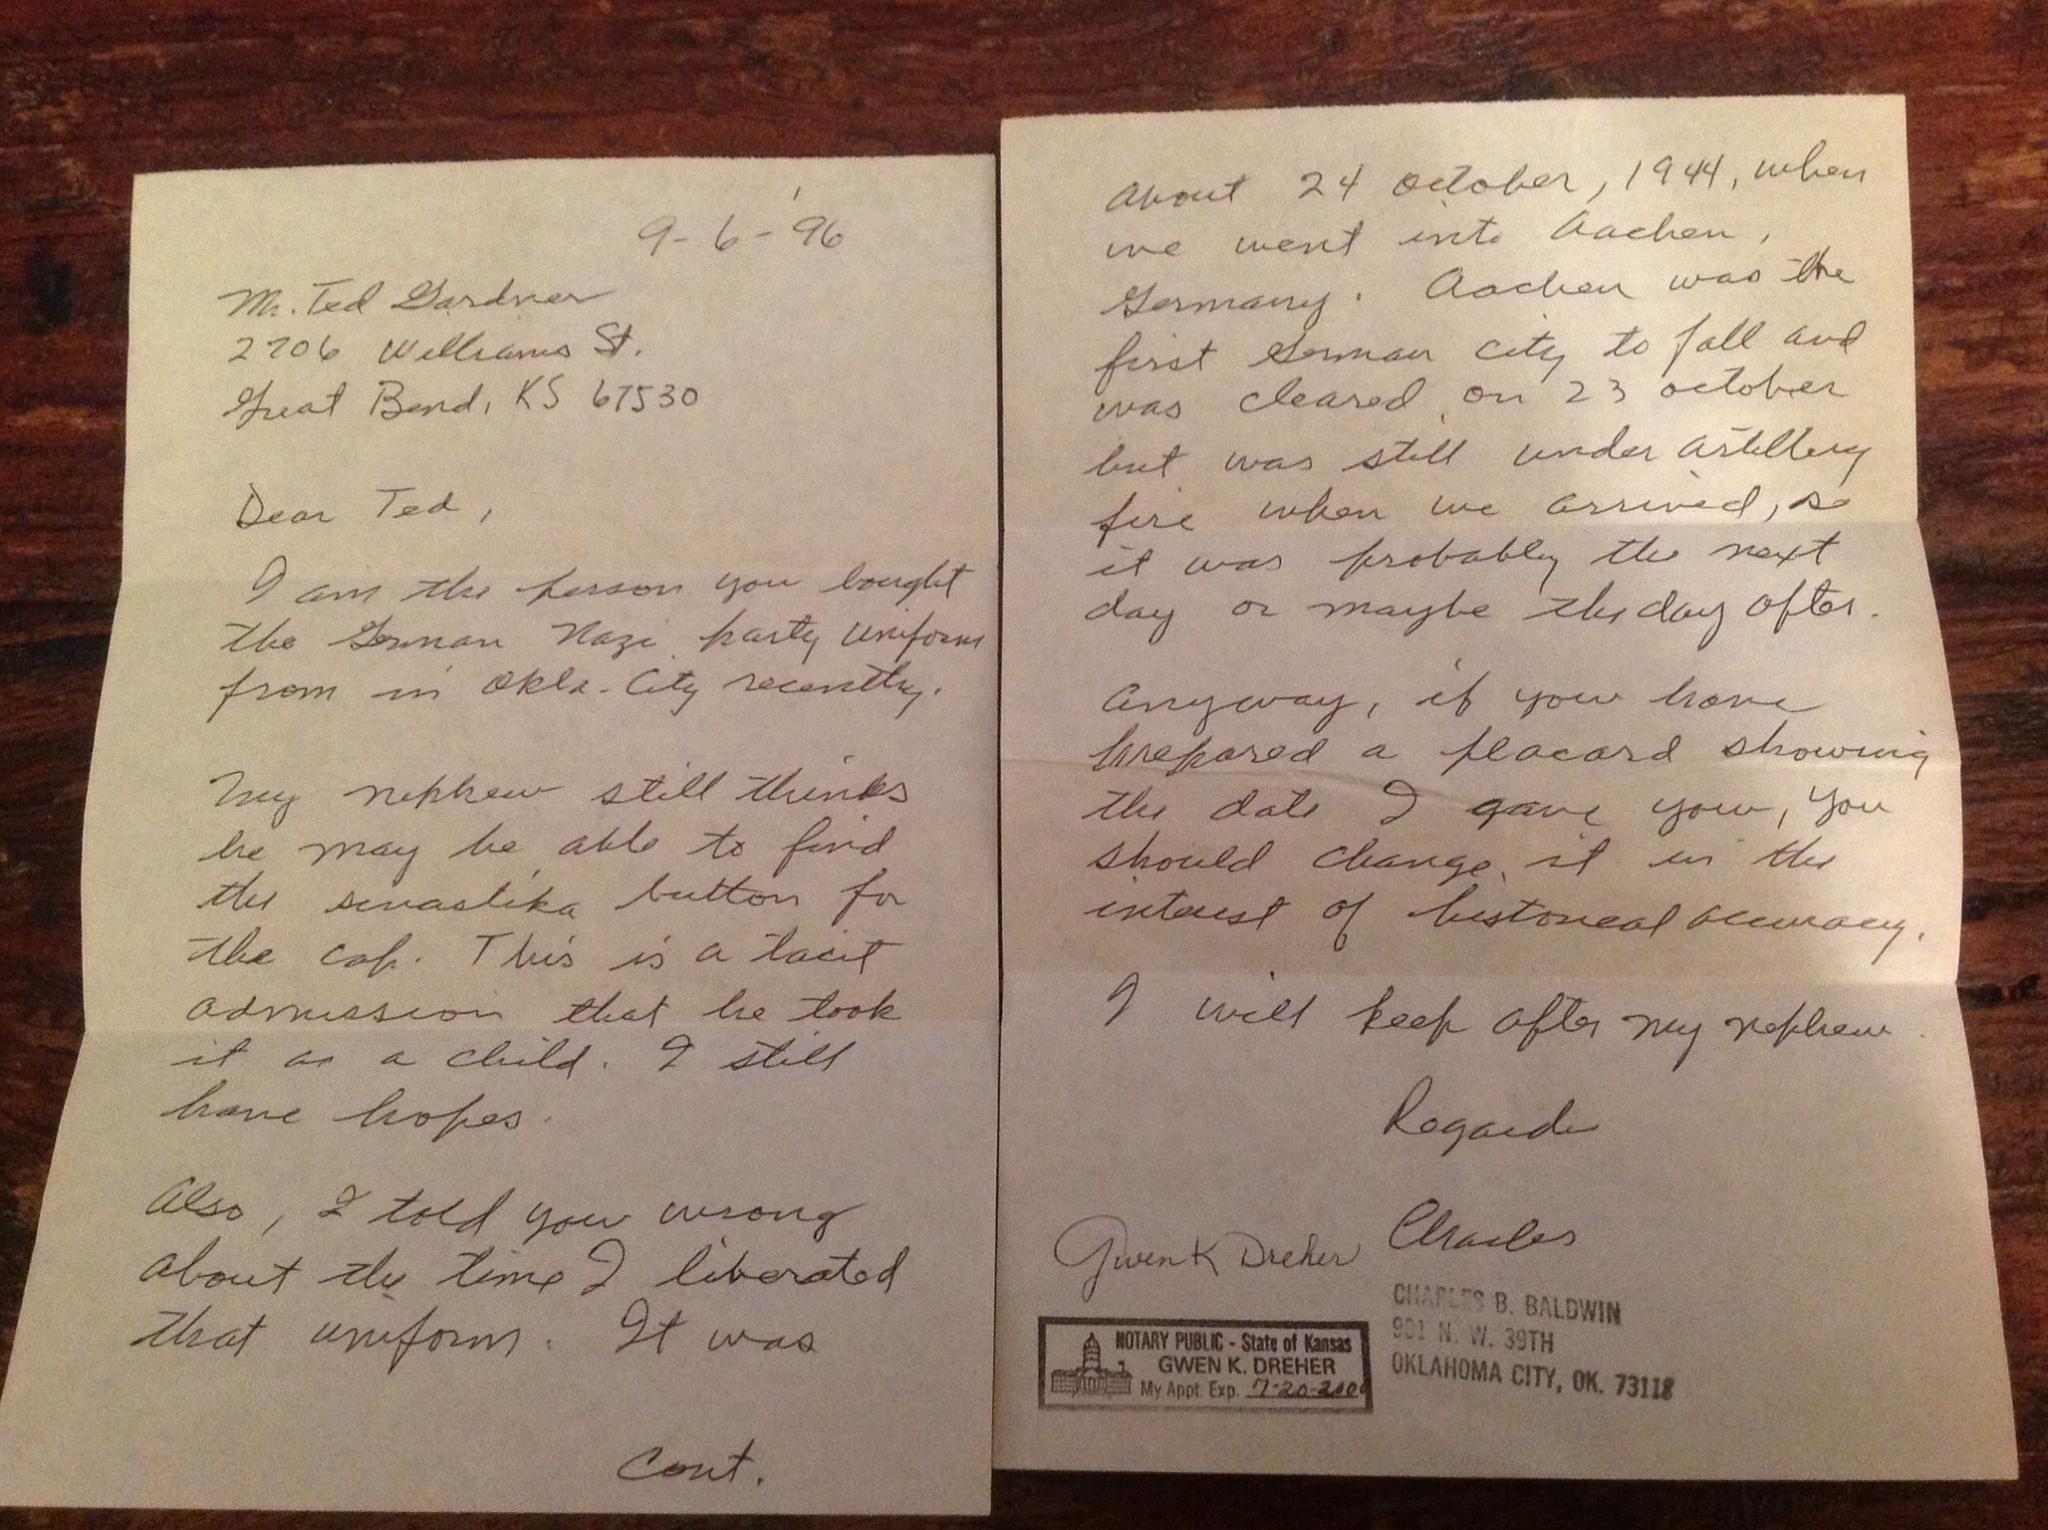 9-6-'96
Mr. Ted Gardner
2706 Williams St.
Great Bend, KS 67530
Dear Ted,
I am the person you bought
the German Nazi party uniform
from in Okla. City recently.
My nephew still thinks
he may be able to find
the swastika button for
the cap. This is a tacit
admission that he took
it as a child. I still
have hopes.
Also, I told you wrong
about the time I liberated
that uniform. It was
Cont.
About 24 October, 1944, when
we went into Aachen,
Germany. Aachen was the
first German city to fall and
was cleared on 23 October
but was still under artillery
fire when we arrived, so
it was probably the next
day or maybe the day after.
Anyway, if you have
prepared a placard showing
the date I gave you, you
should change it in the
interest of historical accuracy.
I will keep after my nephew.
Regards
Charles
Gwen K Dreher
CHARLES B. BALDWIN
901 N. W. 39TH
OKLAHOMA CITY, OK. 73118
NOTARY PUBLIC - State of Kansas
GWEN K. DREHER
My Appt. Exp. 7-20-2000